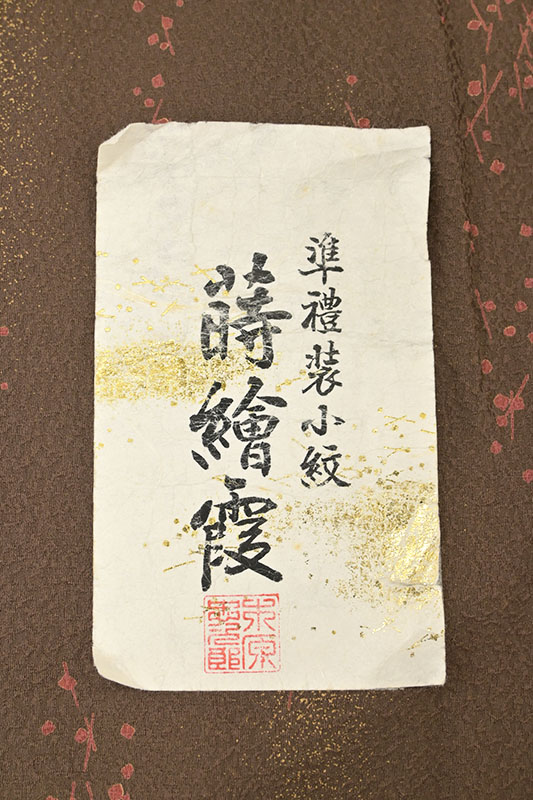 準禮装小紋
蒔繪霞